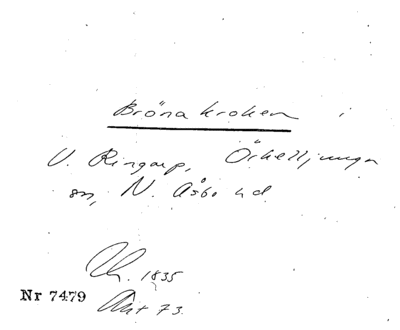 Bröna kroken i
V. Ringarp, Örkelljunga
sn, N. Åsbo hd
1835
Nr 7479
Akt 73.